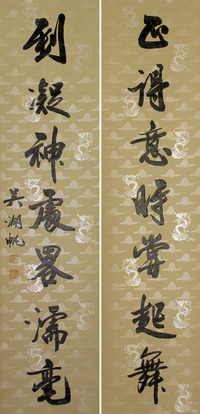 正得意時當起舞
到凝神處畧濡毫
吳湖帆